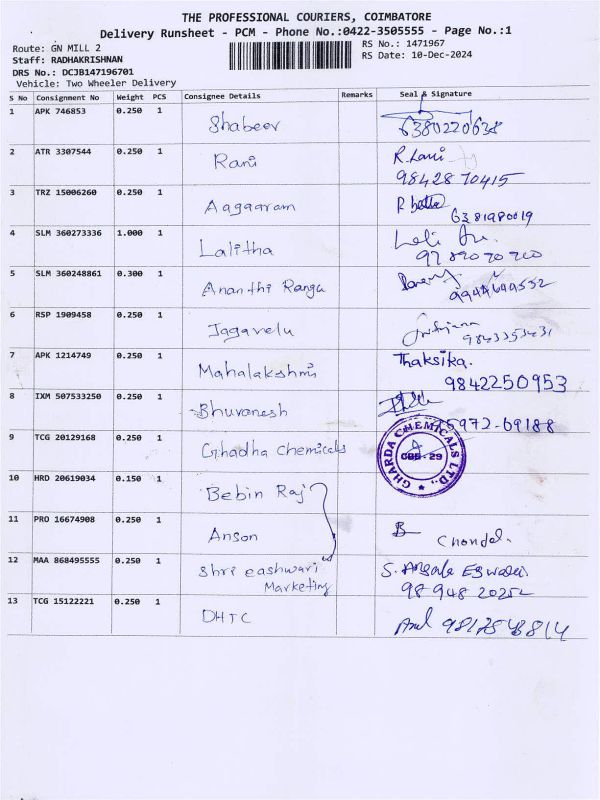 THE PROFESSIONAL COURIERS, COIMBATORE
Delivery Runsheet - PCM - Phone No.:0422-3505555 - Page No.:1
Route: GN MILL 2
RS No.: 1471967
Staff: RADHAKRISHNAN
RS Date: 10-Dec-2024
DRS No.: DCJB147196701
Vehicle: Two Wheeler Delivery
S No Consignment No Weight PCS Consignee Details Remarks Seal & Signature
1 APK 746853 0.250 1 Shabeer 6380220638
2 ATR 3307544 0.250 1 Rani R. Rani
9842870415
3 TRZ 15006260 0.250 1 Aagaaram
6381980019
4 SLM 360273336 1.000 1 Lalitha
5 SLM 360248861 0.300 1 Ananthi Ranga
6 RSP 1909458 0.250 1 Jagavelu
7 APK 1214749 0.250 1 Mahalakshmi Thaksika.
9842250953
8 IXM 507533250 0.250 1 Bhuvanesh
9 TCG 20129168 0.250 1 Ghadha Chemicals
GHARDA CHEMICALS LTD.,
CBE-29
10 HRD 20619034 0.150 1 Bebin Raj
11 PRO 16674908 0.250 1 Anson
12 MAA 868495555 0.250 1 Shri eashwari
Marketing
13 TCG 15122221 0.250 1 DHTC